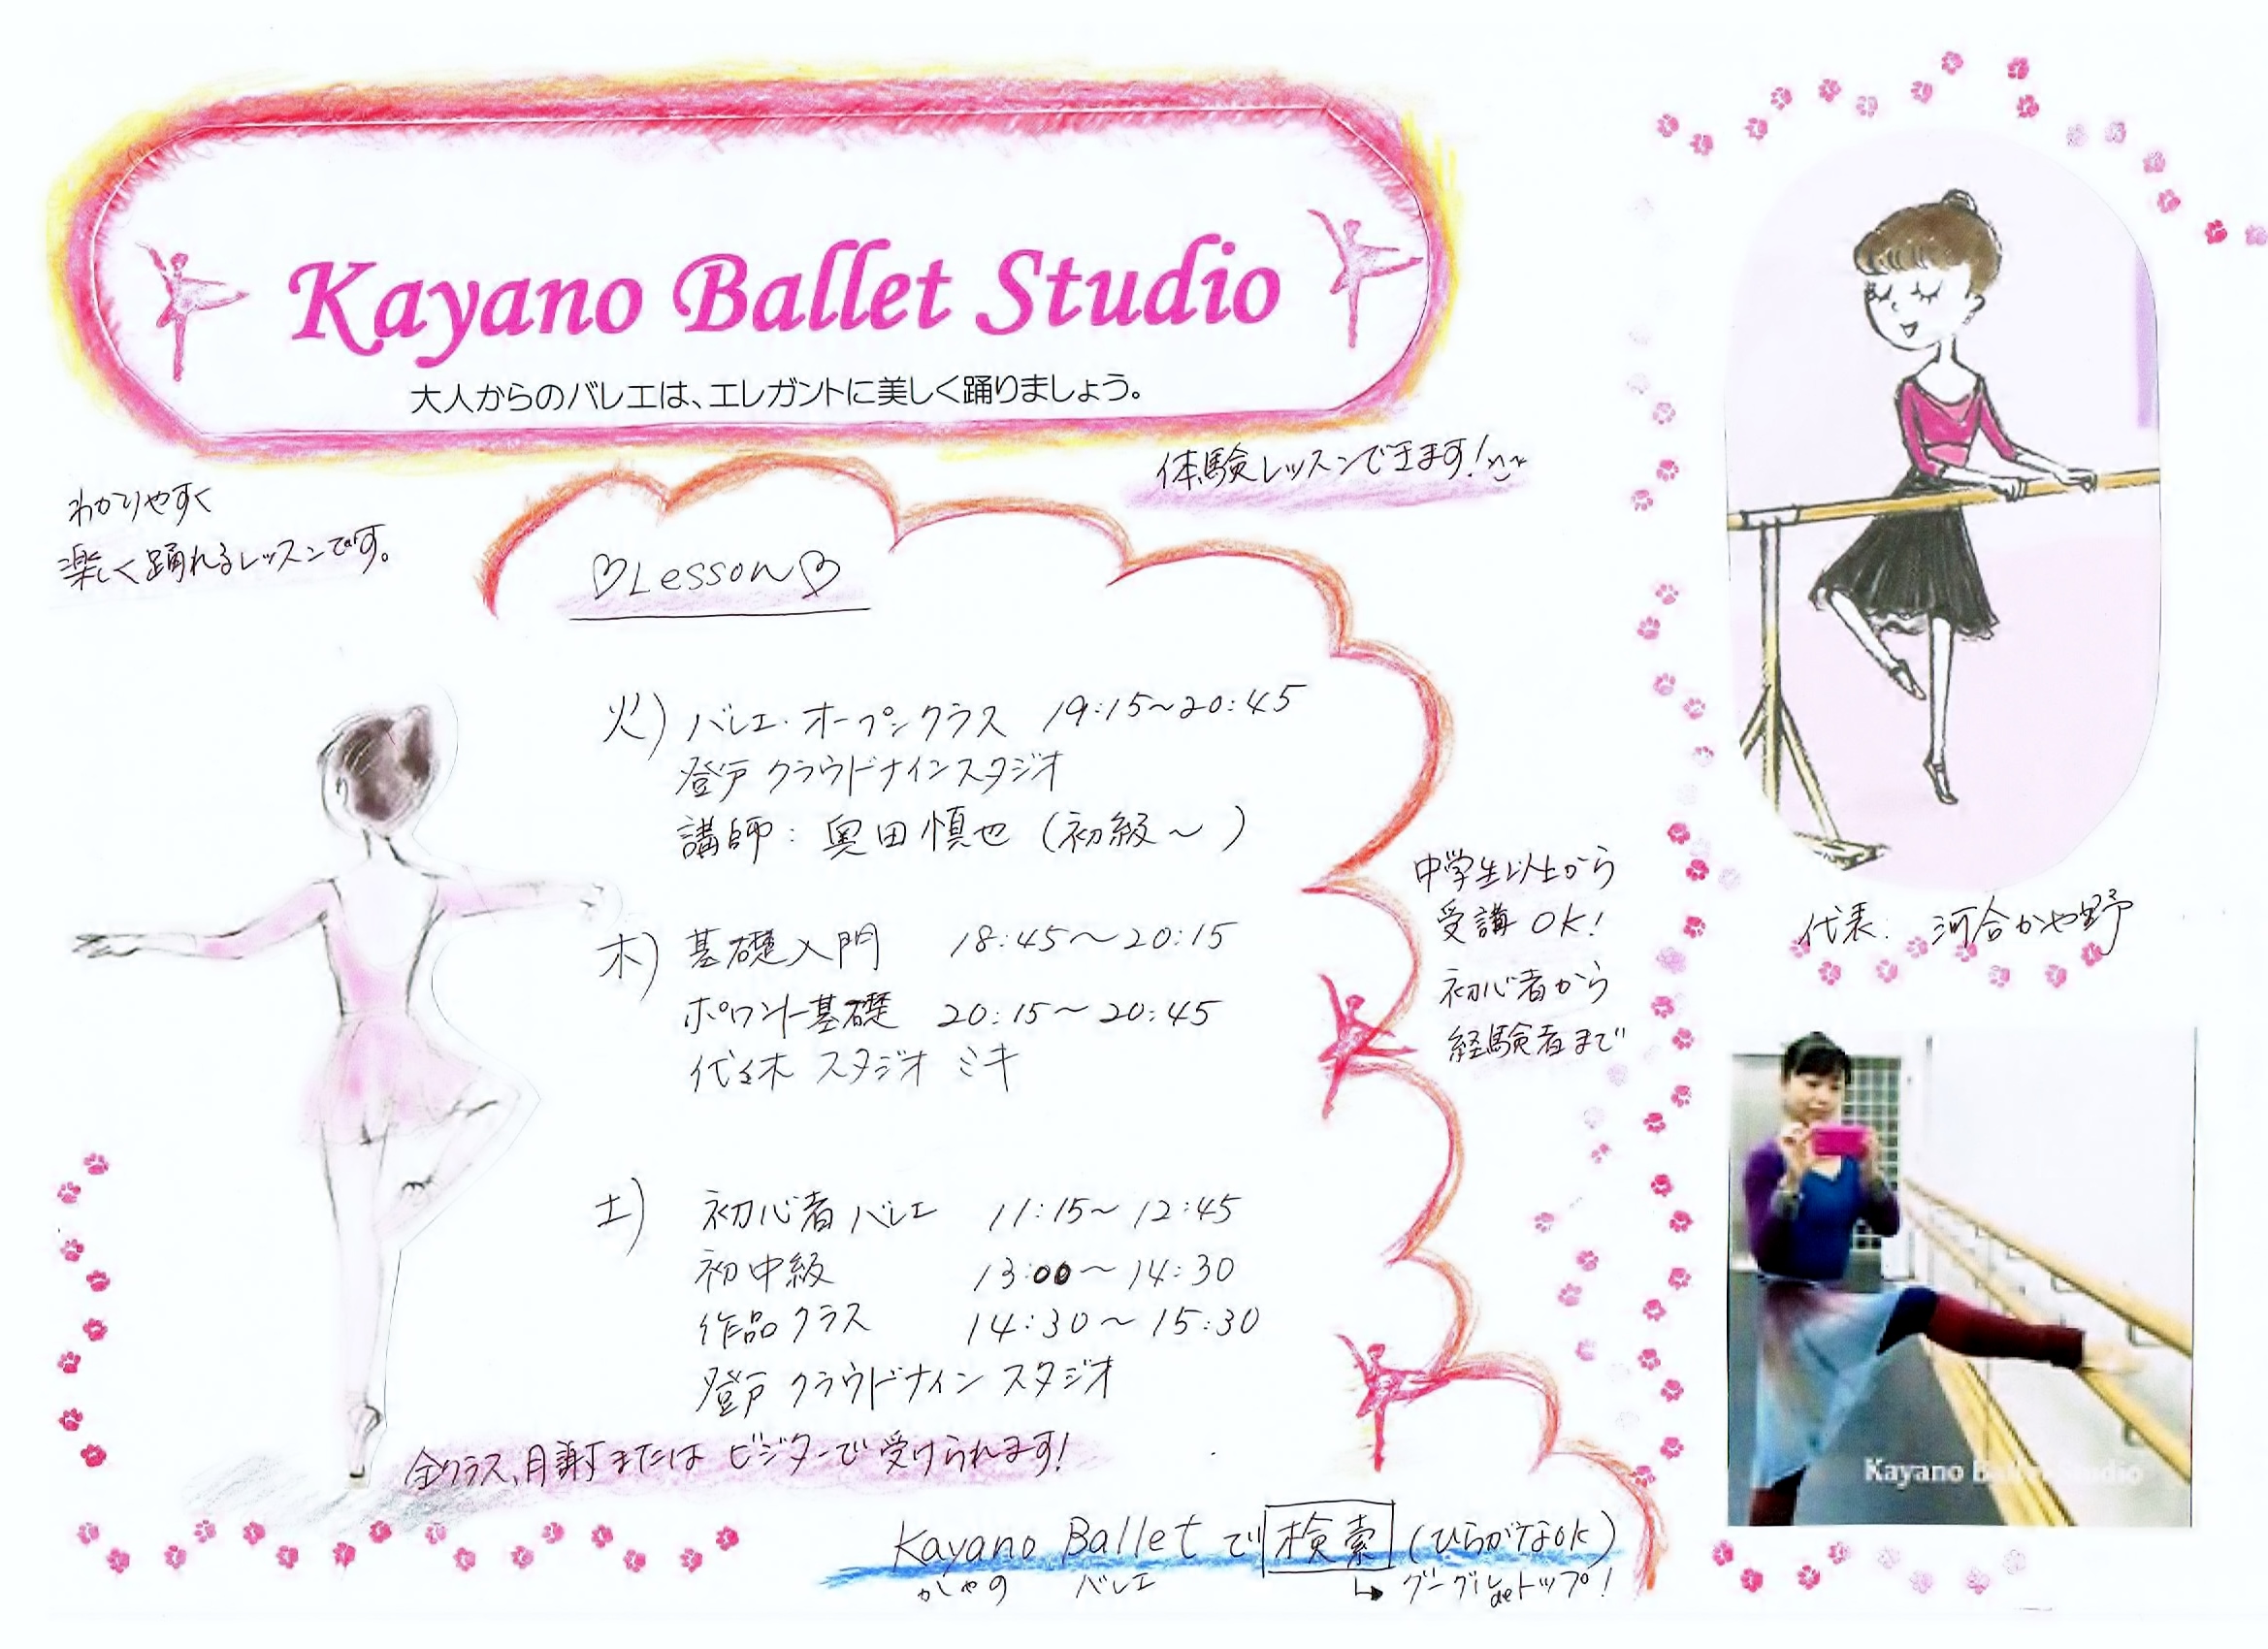 Kayano Ballet Studio
大人からのバレエは、エレガントに美しく踊りましょう。
体験レッスンできます!
わかりやすく
楽しく踊れるレッスンです。
♡Lesson♡
火) バレエ・オープンクラス 19:15〜20:45
登戸 クラウドナインスタジオ
講師: 奥田慎也 (初級〜 )
木) 基礎入門 18:45〜20:15
ポワント基礎 20:15〜20:45
代々木 スタジオ ミキ
土) 初心者 バレエ 11:15〜12:45
初中級 13:00〜14:30
作品クラス 14:30〜15:30
登戸 クラウドナイン スタジオ
全クラス、月謝または ビジターで受けられます!
中学生以上から
受講 OK!
初心者から
経験者まで
代表: 河合かや野
Kayano Ballet Studio
Kayano Ballet で 検索 (ひらがなOK)
かやの バレエ ↳ グーグル deトップ!